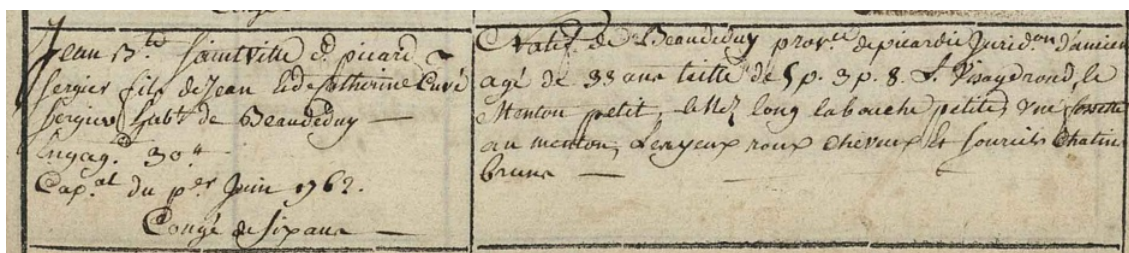 Jean B.te Saintville d. picard
sergier fils de Jean et de Catherine Curé
sergier hab.t de Beaudeduy —
Engag. 30.tt
Cap.al du p.er Juin 1762.
Congé de six ans —
Natif de Beaudeduy prov.ce de picardie Jurid.on d'amien
agé de 33 ans taille de 5 p. 3 p. 8. l. Visage rond, le
Menton petit, le Nez long la bouche petite, une fossette
au menton, Les yeux roux cheveux et sourcils Chatin
bruns —